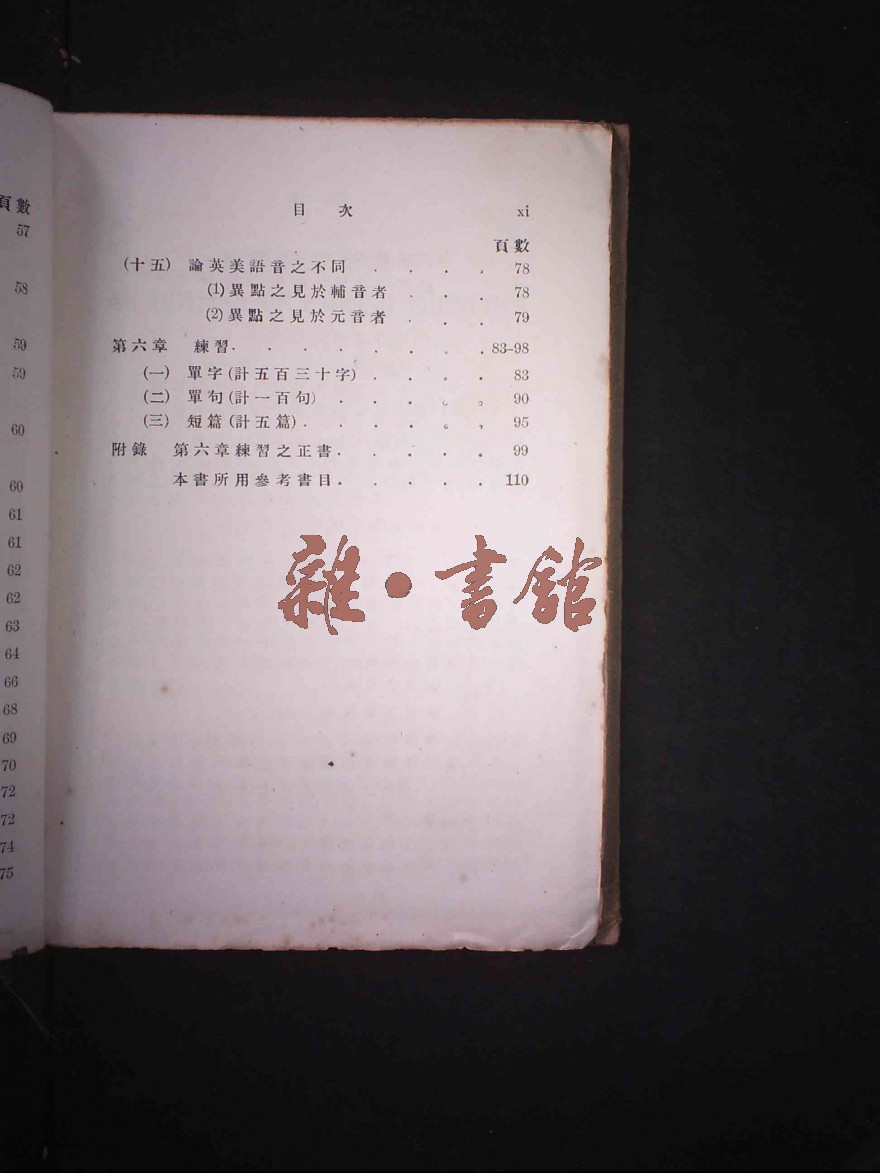 頁數
57
58
59
59
60
60
61
61
62
62
63
64
66
68
69
70
72
72
74
75
目 次 xi
頁數
(十五) 論英美語音之不同 . . . . 78
(1)異點之見於輔音者 . . . 78
(2)異點之見於元音者 . . . 79
第六章 練習. . . . . . . . 83-98
(一) 單字(計五百三十字) . . . . 83
(二) 單句(計一百句) . . . . . 90
(三) 短篇(計五篇). . . . . . 95
附錄 第六章練習之正書. . . . . 99
本書所用參考書目. . . . . 110
雜·書館